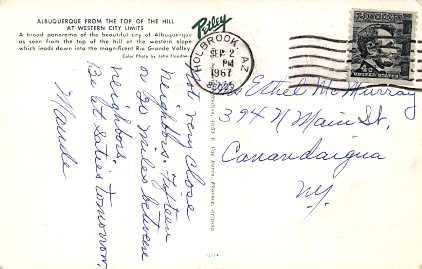 ALBUQUERQUE FROM THE TOP OF THE HILL
AT WESTERN CITY LIMITS
A broad panorama of the beautiful city of Albuquerque
as seen from the top of the hill at the western slope
which leads down into the magnificent Rio Grande Valley.
Color Photo by John Flowers
Petley
HOLBROOK, AZ
SEP 2
PM
1967
UNITED STATES
Not very close
neighbors. Fifteen
or 25 miles between
neighbors.
Be at tomorrow,
Maude
Ethel McMurray
394 N Main St,
Canandaigua
N.Y.